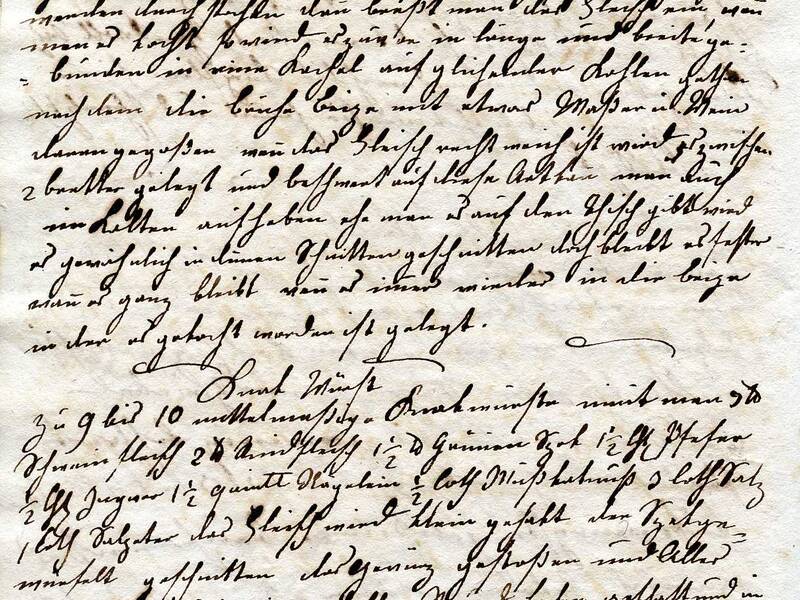 werden durchstochen dan beißt man das Fleisch ein wen
man es kocht so wird es zuvor in länge und breite ge-
bunden in eine Kachel auf gliehender Kohlen gethan
nach dem die brühe beize mit etwas Waßer u. Wein
daran gegoßen wen das Fleisch recht weich ist wird es zwischen
2 bretter gelegt und beschwert auf diese Art kan man auch
im Kalten aufheben ehe man es auf den Thisch gibt wird
es gewöhnlich in dünen Schnitten geschnitten doch bleibt es fester
wan es ganz bleibt wen es imer wieder in die beize
in der es gekocht worden ist gelegt.
Knak Würst
Zu 9 bis 10 mittelmaßige Knakwürste nimt man 3 ℔
Schweinfleisch 2 ℔ Rindfleisch 1 1/2 ℔ Grünen Spek 1 1/2 Pfefer
1/2 Ingwer 1 1/2 quintl Nagelein 1/2 loth Mußkatnuß 3 loth Salz
1 loth Salpeter das Fleisch wird klein gehakt der Spek ge-
würfelt geschnitten das gewürz gestoßen und Alles